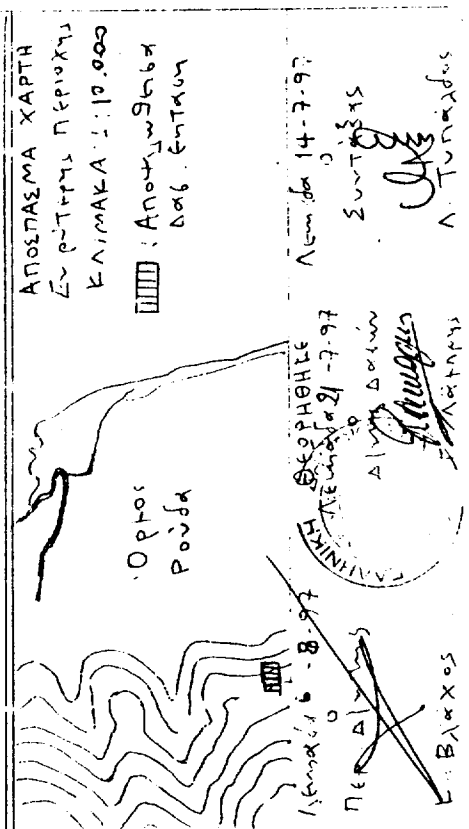 ΑΠΟΣΠΑΣΜΑ ΧΑΡΤΗ
Ευρύτερης Περιοχής
ΚΛΙΜΑΚΑ 1:10.000
: Αποψιλωθείσα
Δασ. έκταση
Όρμος
Ρούδα
Λευκάδα 14-7-97
Ο
Συντάξας
Λ. Τυπάλδος
ΘΕΩΡΗΘΗΚΕ
Λευκάδα 21-7-97
Ο
Δ/ντής Δασών
ΕΛΛΗΝΙΚΗ
Λευκάδα 6-8-97
Ο
Περ. Δ/ντής
Βλάχος